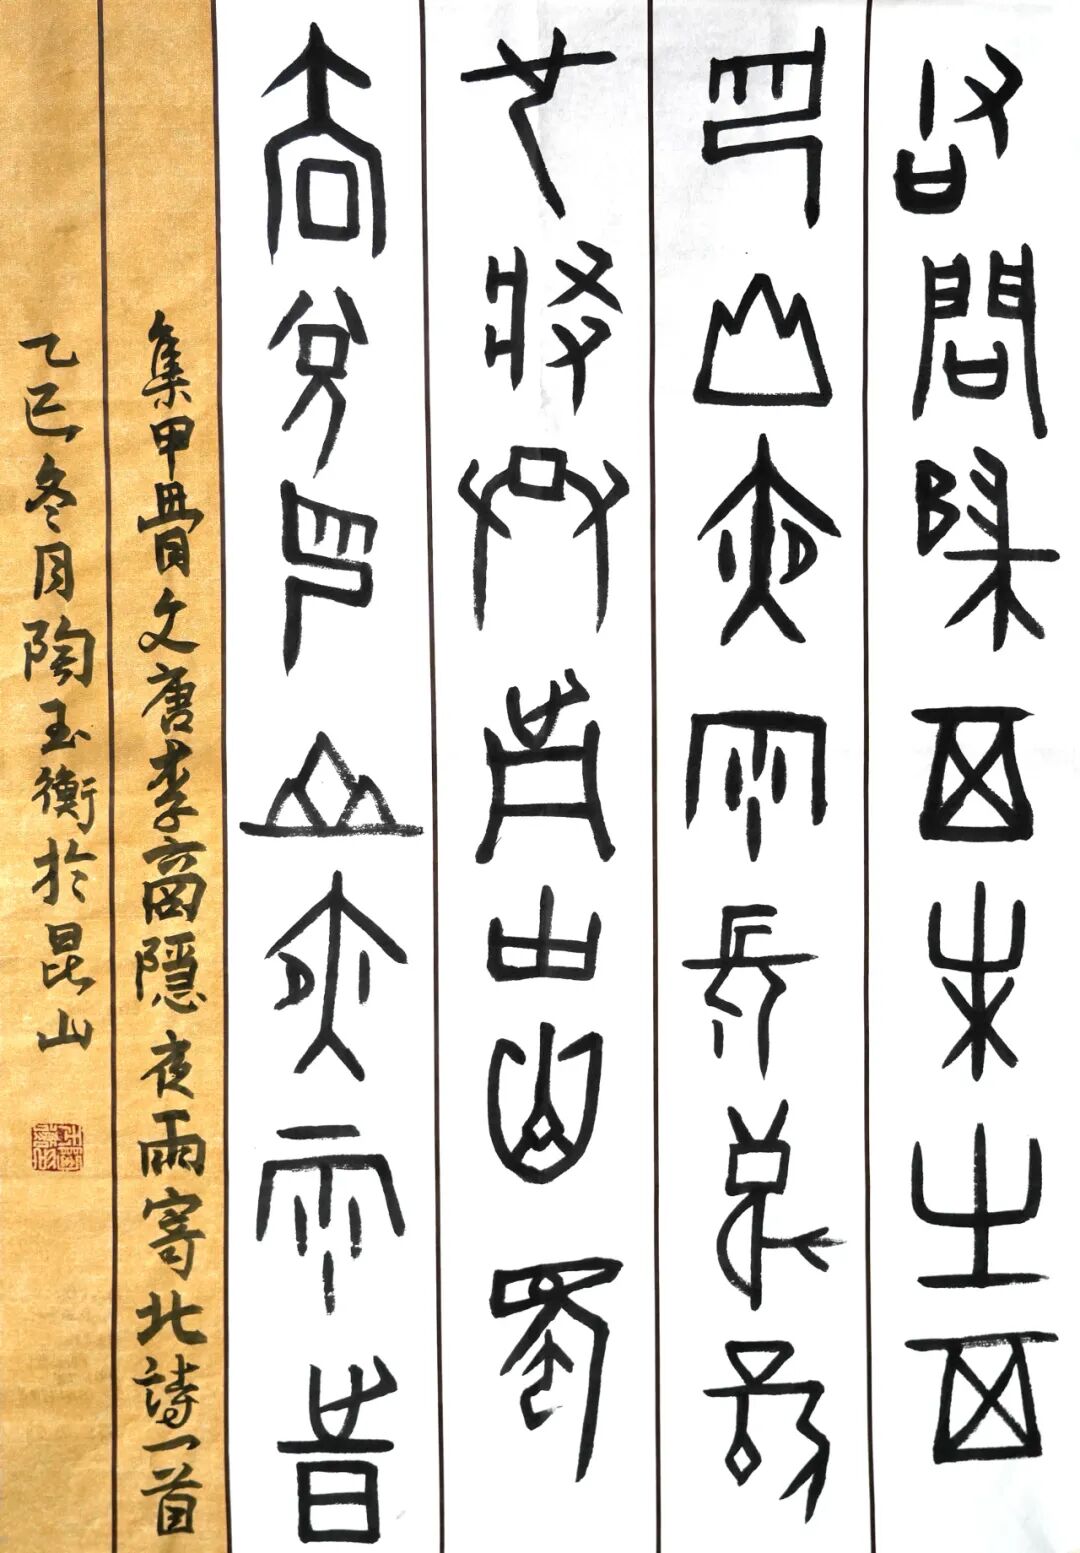 君問歸期未有期
巴山夜雨漲秋池
何當共剪西窗燭
却話巴山夜雨時
集甲骨文唐李商隱夜雨寄北詩一首
乙巳冬月陶玉衡於昆山